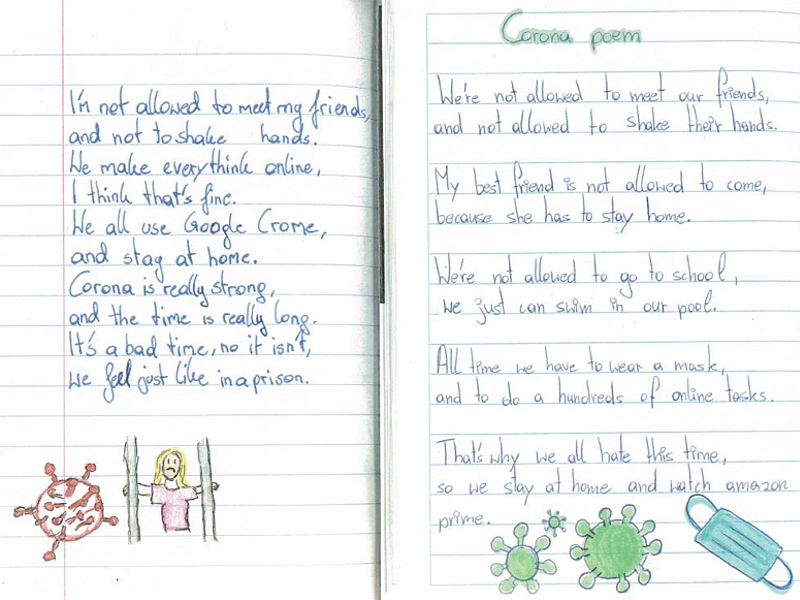 I'm not allowed to meet my friends,
and not to shake hands.
We make everythink online,
I think that's fine.
We all use Google Crome,
and stay at home.
Corona is really strong,
and the time is really long.
It's a bad time, no it isn't,
we feel just like in a prison.
Corona poem
We're not allowed to meet our friends,
and not allowed to shake their hands.
My best friend is not allowed to come,
because she has to stay home.
We're not allowed to go to school,
we just can swim in our pool.
All time we have to wear a mask,
and to do a hundreds of online tasks.
That's why we all hate this time,
so we stay at home and watch amazon
prime.